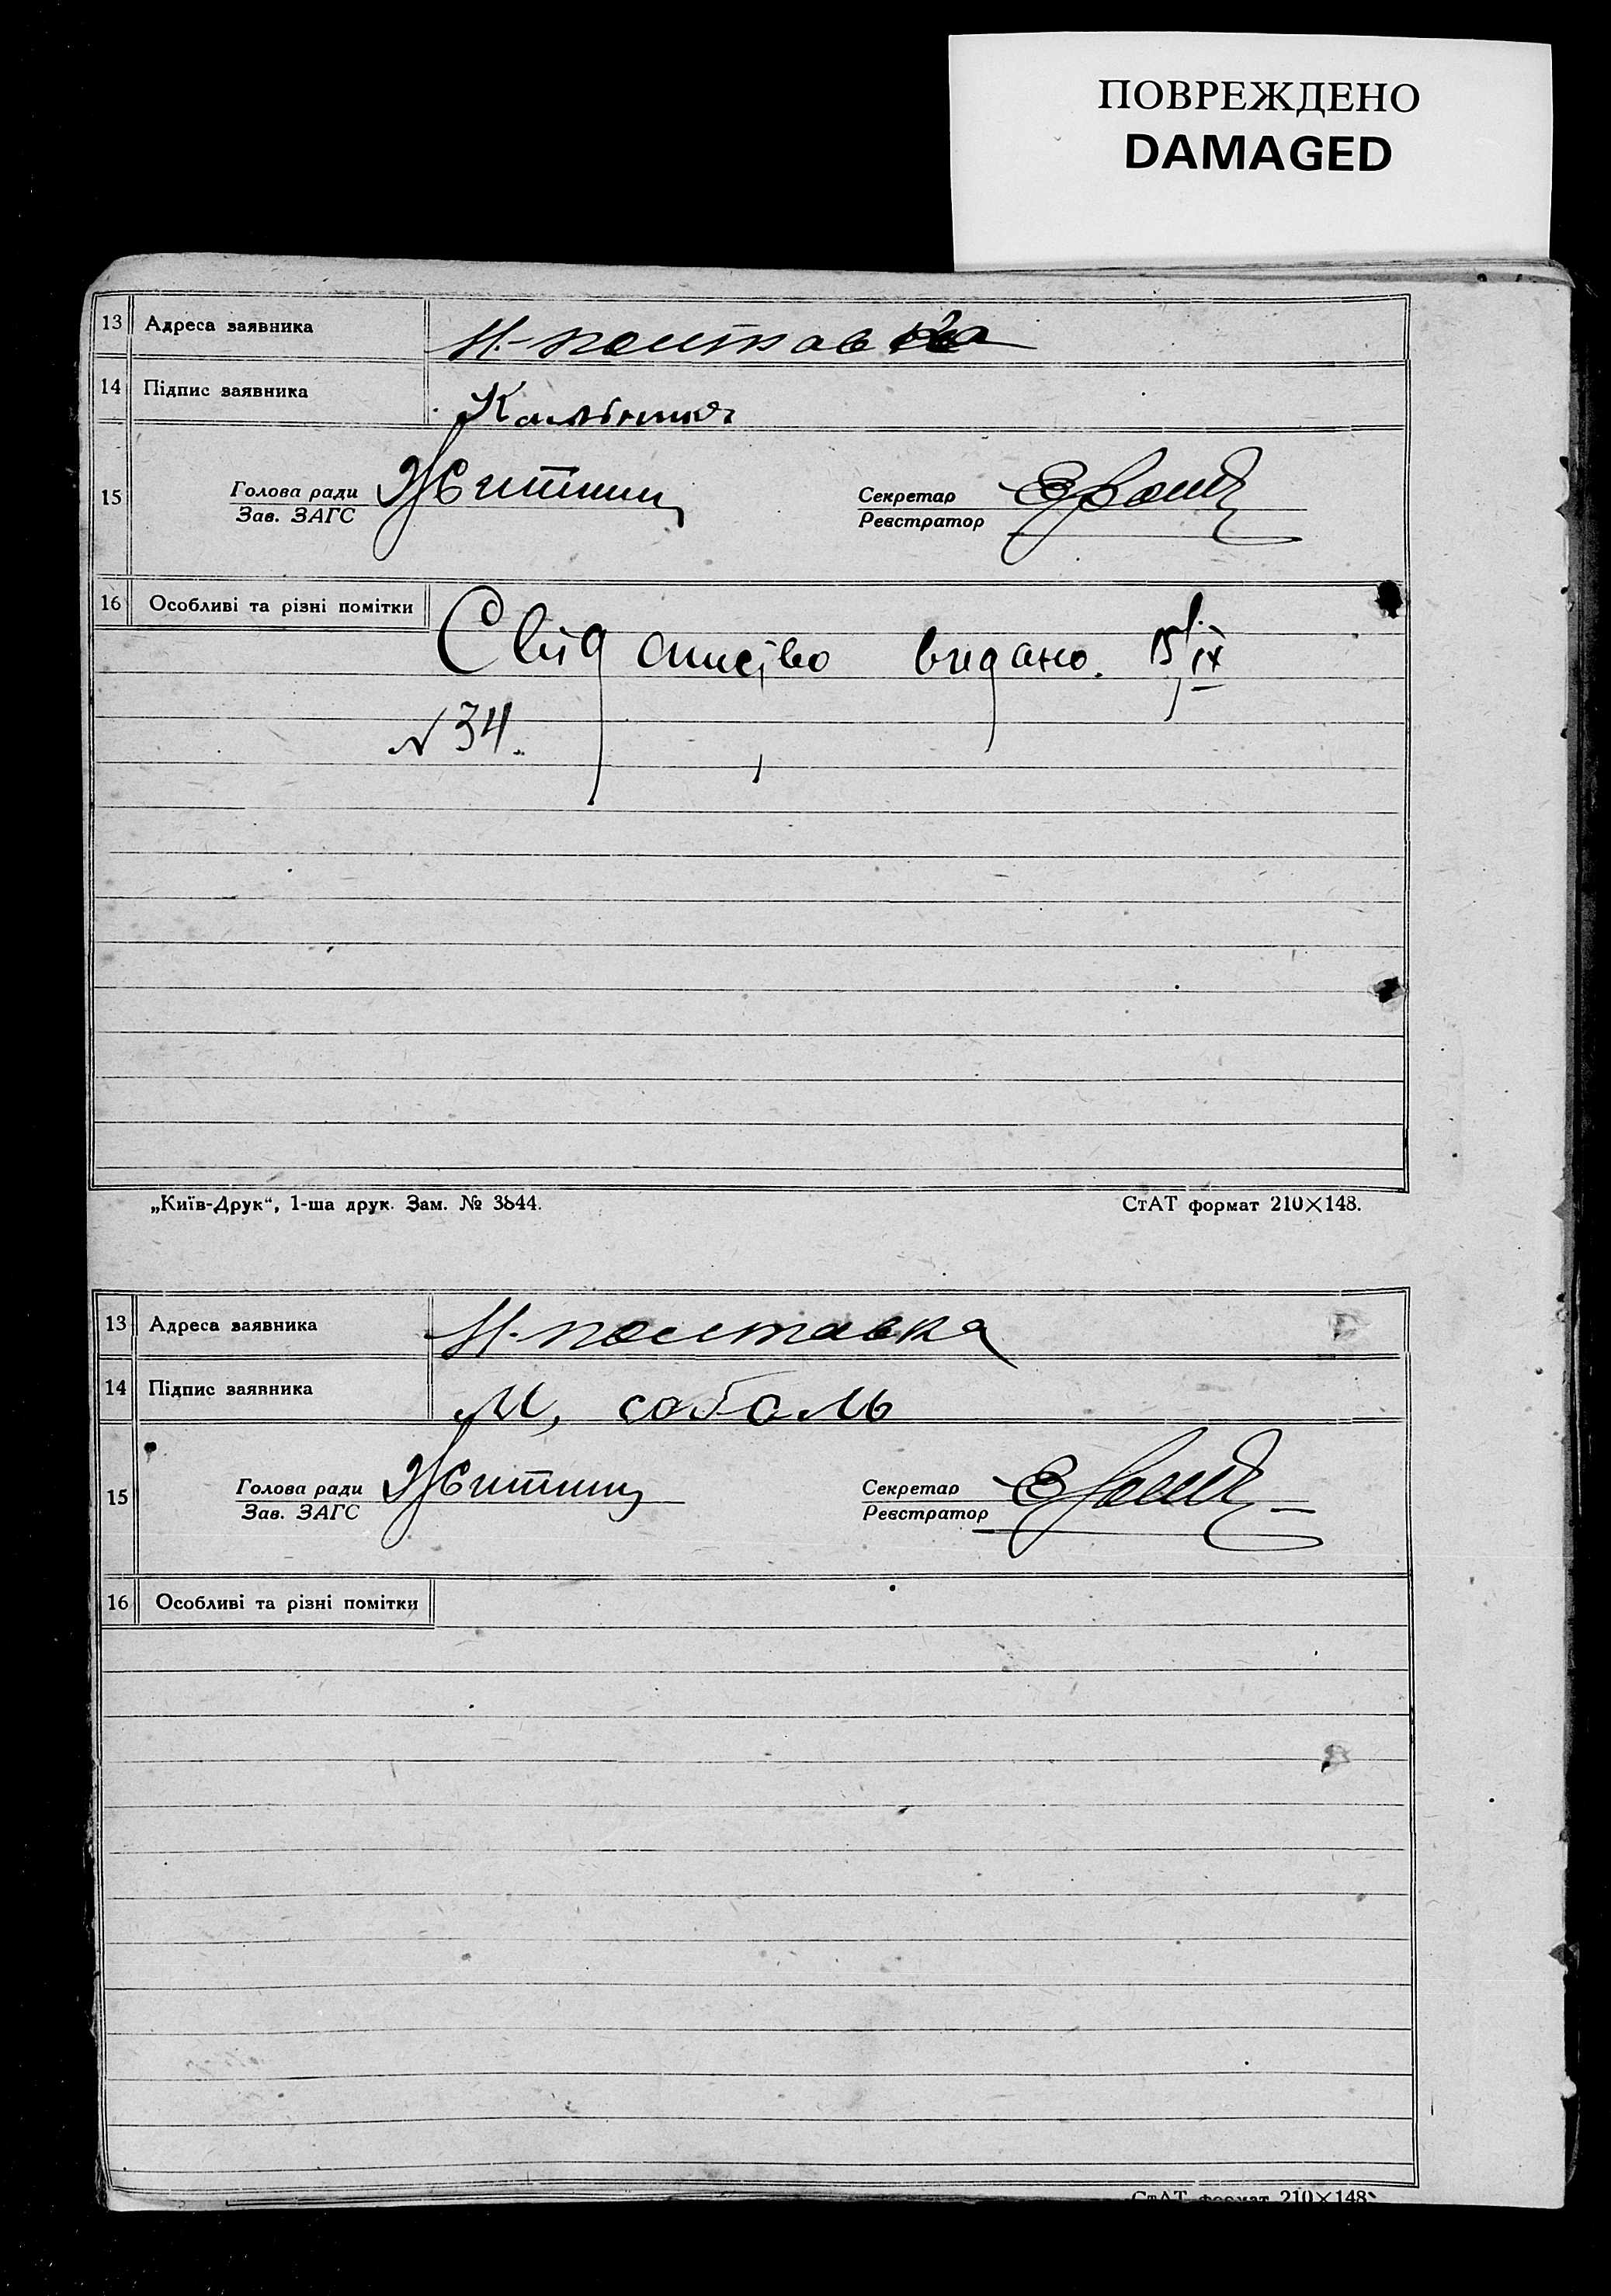 ПОВРЕЖДЕНО
DAMAGED
13 Адреса заявника Н-полтавка
14 Підпис заявника
15 Голова ради Секретар
Зав. ЗАГС Реєстратор
16 Особливі та різні помітки
Свідоцтво видано. 15/IX
№34.
„Київ-Друк“, 1-ша друк. Зам. № 3844.
СтАТ формат 210×148.
13 Адреса заявника Н-полтавка
14 Підпис заявника М, соболь
15 Голова ради Секретар
Зав. ЗАГС Реєстратор
16 Особливі та різні помітки
СтАТ формат 210×148.